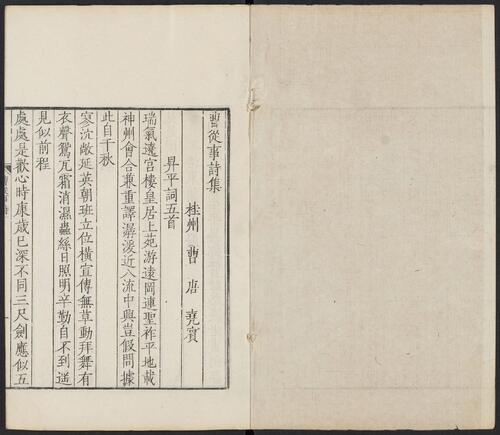 曹從事詩集
桂州 曹唐 堯賓
昇平詞五首
瑞氣遶宮樓皇居上苑游遠岡連聖祚平地載
神州會合兼重譯潺湲近八流中興豈假問據
此自千秋
寥泬敞延英朝班立位橫宣傳無草動拜舞有
衣聲鴛瓦霜消濕蟲絲日照明辛勤自不到遙
見似前程
處處是歡心時康歲已深不同三尺劍應似五